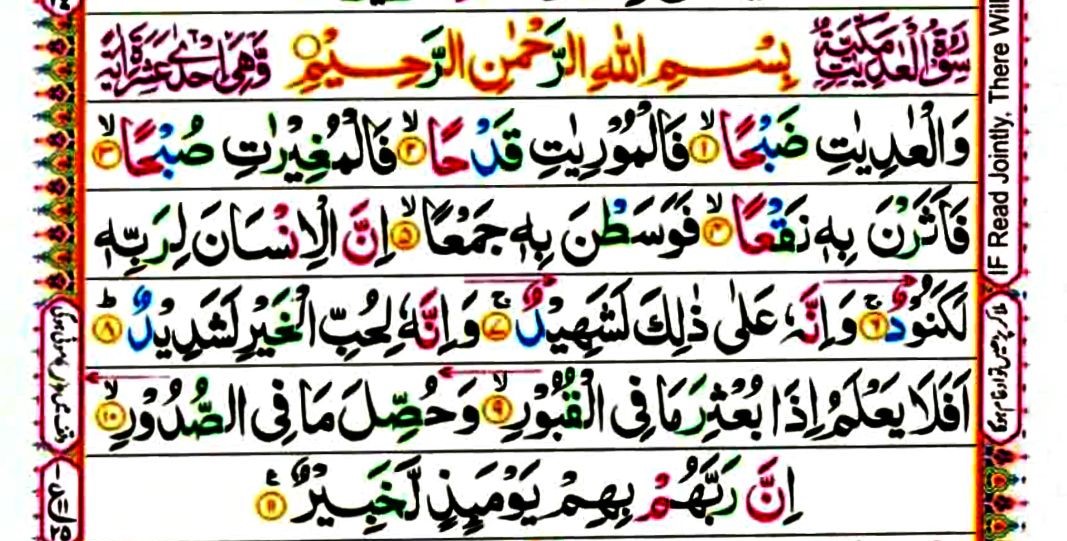 سورة العديت مكية
بِسْمِ اللهِ الرَّحْمٰنِ الرَّحِيْمِ
وَّهِيَ اِحْدٰى عَشَرَةَ اٰيَةً
وَالْعٰدِيٰتِ ضَبْحًا ۙ﴿۱﴾ فَالْمُوْرِيٰتِ قَدْحًا ۙ﴿۲﴾ فَالْمُغِيْرٰتِ صُبْحًا ۙ﴿۳﴾
فَاَثَرْنَ بِهٖ نَقْعًا ۙ﴿۴﴾ فَوَسَطْنَ بِهٖ جَمْعًا ۙ﴿۵﴾ اِنَّ الْاِنْسَانَ لِرَبِّهٖ
لَكَنُوْدٌ ۚ﴿۶﴾ وَاِنَّهٗ عَلٰى ذٰلِكَ لَشَهِيْدٌ ۚ﴿۷﴾ وَاِنَّهٗ لِحُبِّ الْخَيْرِ لَشَدِيْدٌ ؕ﴿۸﴾
اَفَلَا يَعْلَمُ اِذَا بُعْثِرَ مَا فِى الْقُبُوْرِ ۙ﴿۹﴾ وَحُصِّلَ مَا فِى الصُّدُوْرِ ۙ﴿۱۰﴾
اِنَّ رَبَّهُمْ بِهِمْ يَوْمَىِٕذٍ لَّخَبِيْرٌ ﴿۱۱﴾
IF Read Jointly, There Will